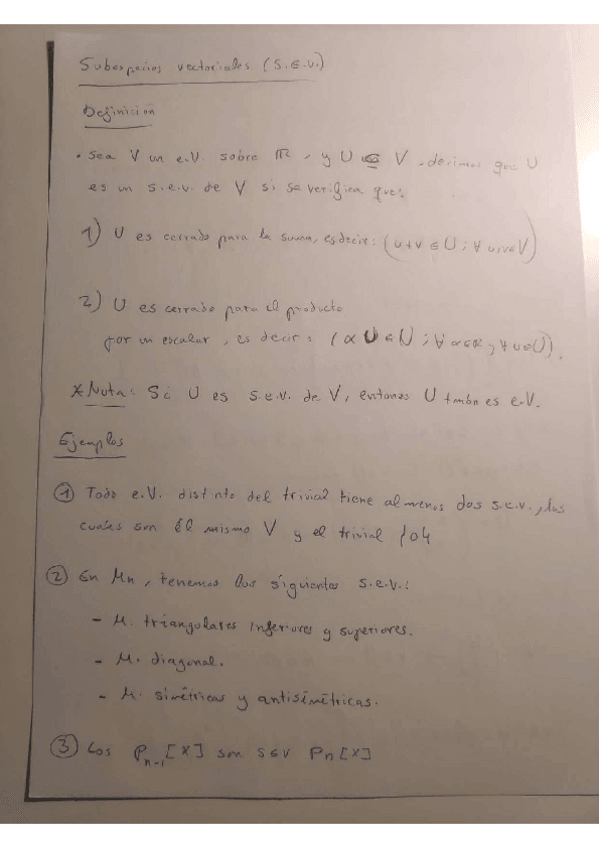 Subespacios vectoriales (S.E.V.)
Definición
• Sea V un e.V. sobre ℝ, y U ⊆ V, decimos que U
es un s.e.v. de V si se verifica que:
1) U es cerrado para la suma, es decir: (u+v ∈ U ; ∀ u,v ∈ V)
2) U es cerrado para el producto
por un escalar, es decir: (α U ∈ U ; ∀ α ∈ ℝ y ∀ u ∈ U).
* Nota: Si U es s.e.v. de V, entonces U es e.V.
Ejemplos
① Todo e.V. distinto del trivial tiene al menos dos s.e.v., los
cuales son él mismo V y el trivial {0}
② En Mn, tenemos los siguientes s.e.v.:
- M. triangulares inferiores y superiores.
- M. diagonal.
- M. simétricas y antisimétricas.
③ Los Pn-1[X] son SEV Pn[X]